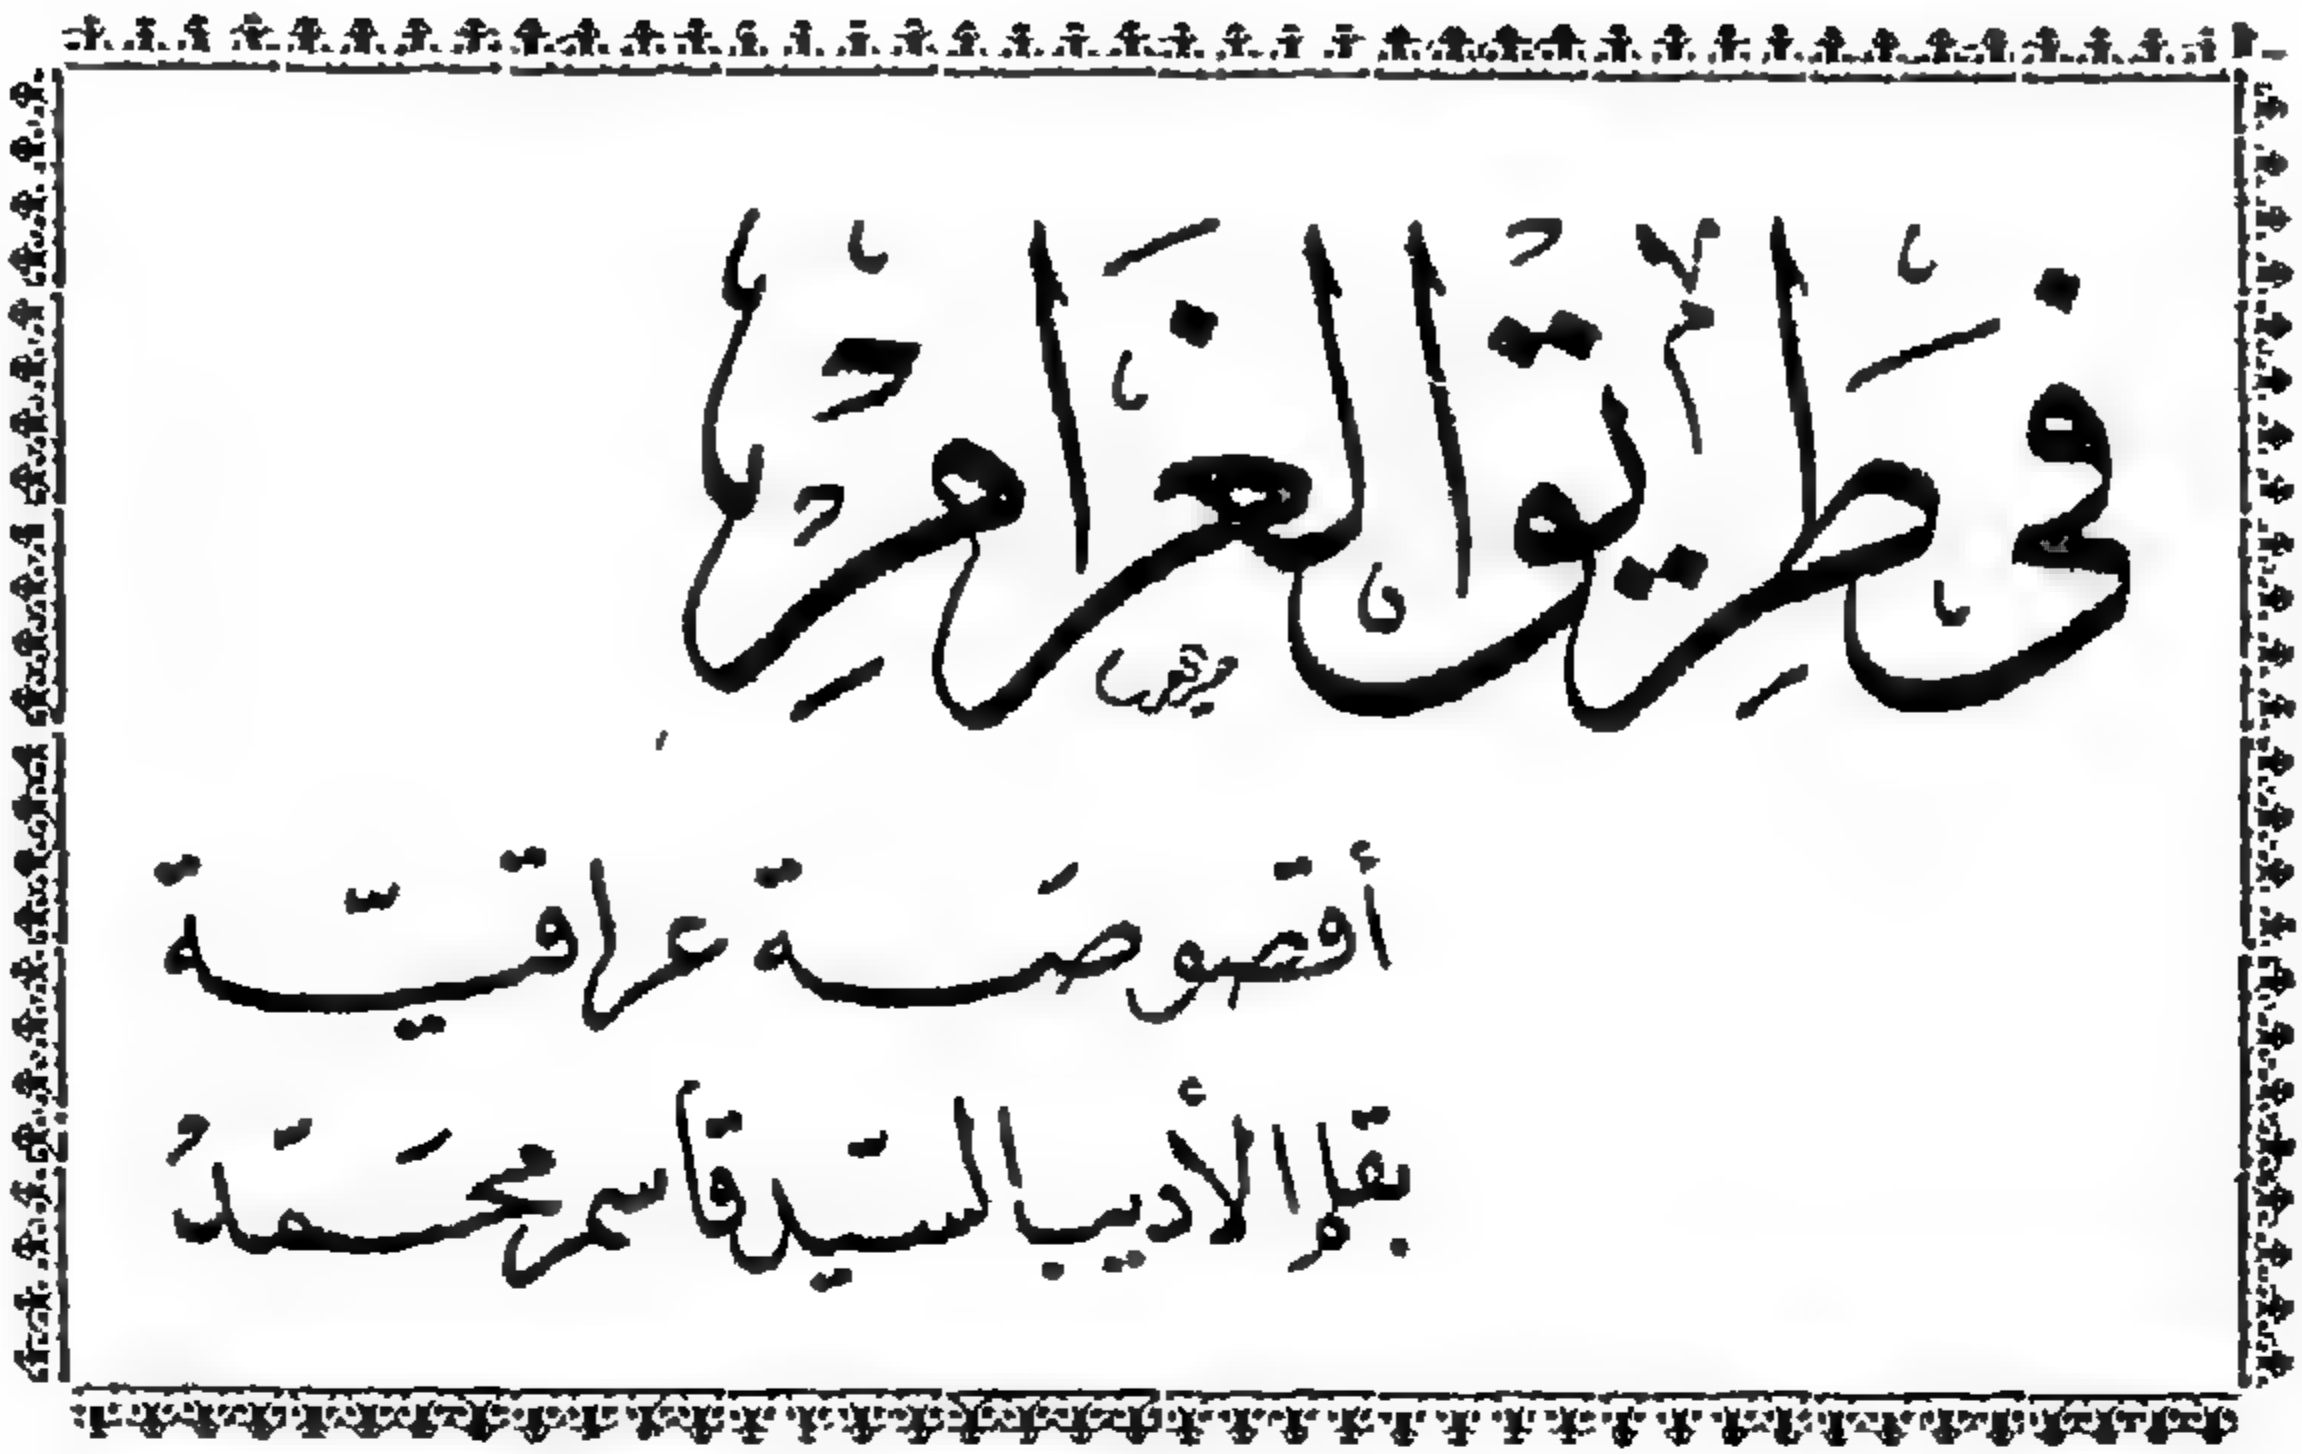 في طَرِيق الغَرامِ
أقصوصَة عراقيّة
بقلم الأديب السّيد قاسم محَمّد